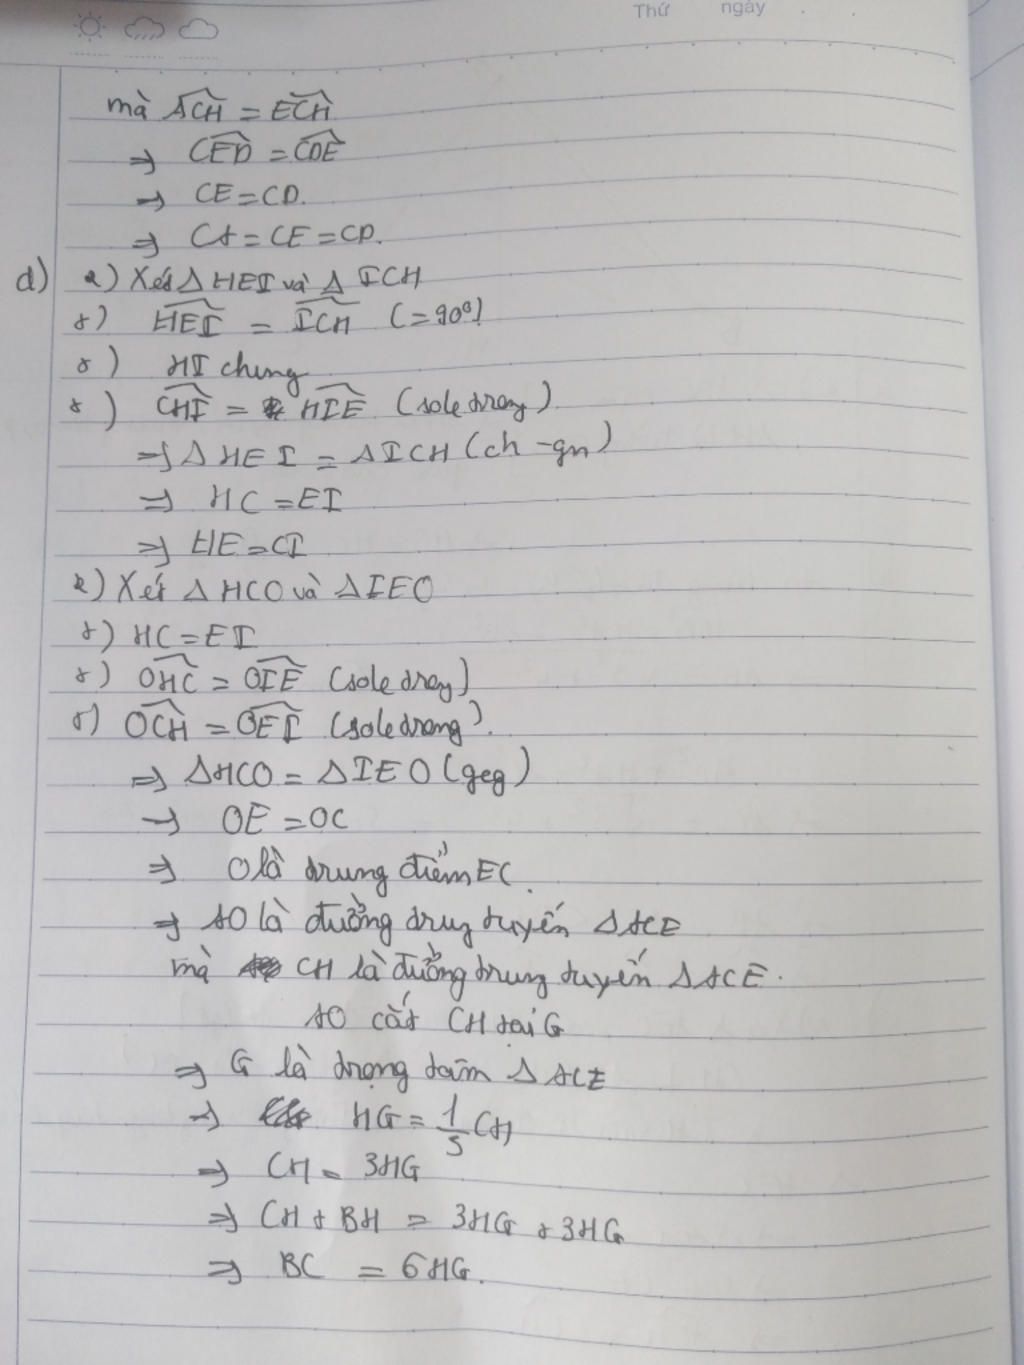 Thứ ngày
mà ACH = ECH
=> CED = CDE
=> CE = CD.
=> CA = CE = CD.
d) *) Xét Δ HEI và Δ ICH
+) HEI = ICH (= 90°)
+) HI chung
+) CHI = HIE (sole trong)
=> Δ HEI = Δ ICH (ch - gn)
=> HC = EI
=> HE = CI
*) Xét Δ HCO và Δ IEO
+) HC = EI
+) OHC = OIE (sole trong)
+) OCH = OEI (sole trong)
=> ΔHCO = Δ IEO (gcg)
=> OE = OC
=> O là trung điểm EC.
=> AO là đường trung tuyến Δ ACE
mà CH là đường trung tuyến Δ ACE.
AO cắt CH tại G
=> G là trọng tâm Δ ACE
=> HG = 1/3 CH
=> CH = 3HG
=> CH + BH = 3HG + 3HG
=> BC = 6HG.